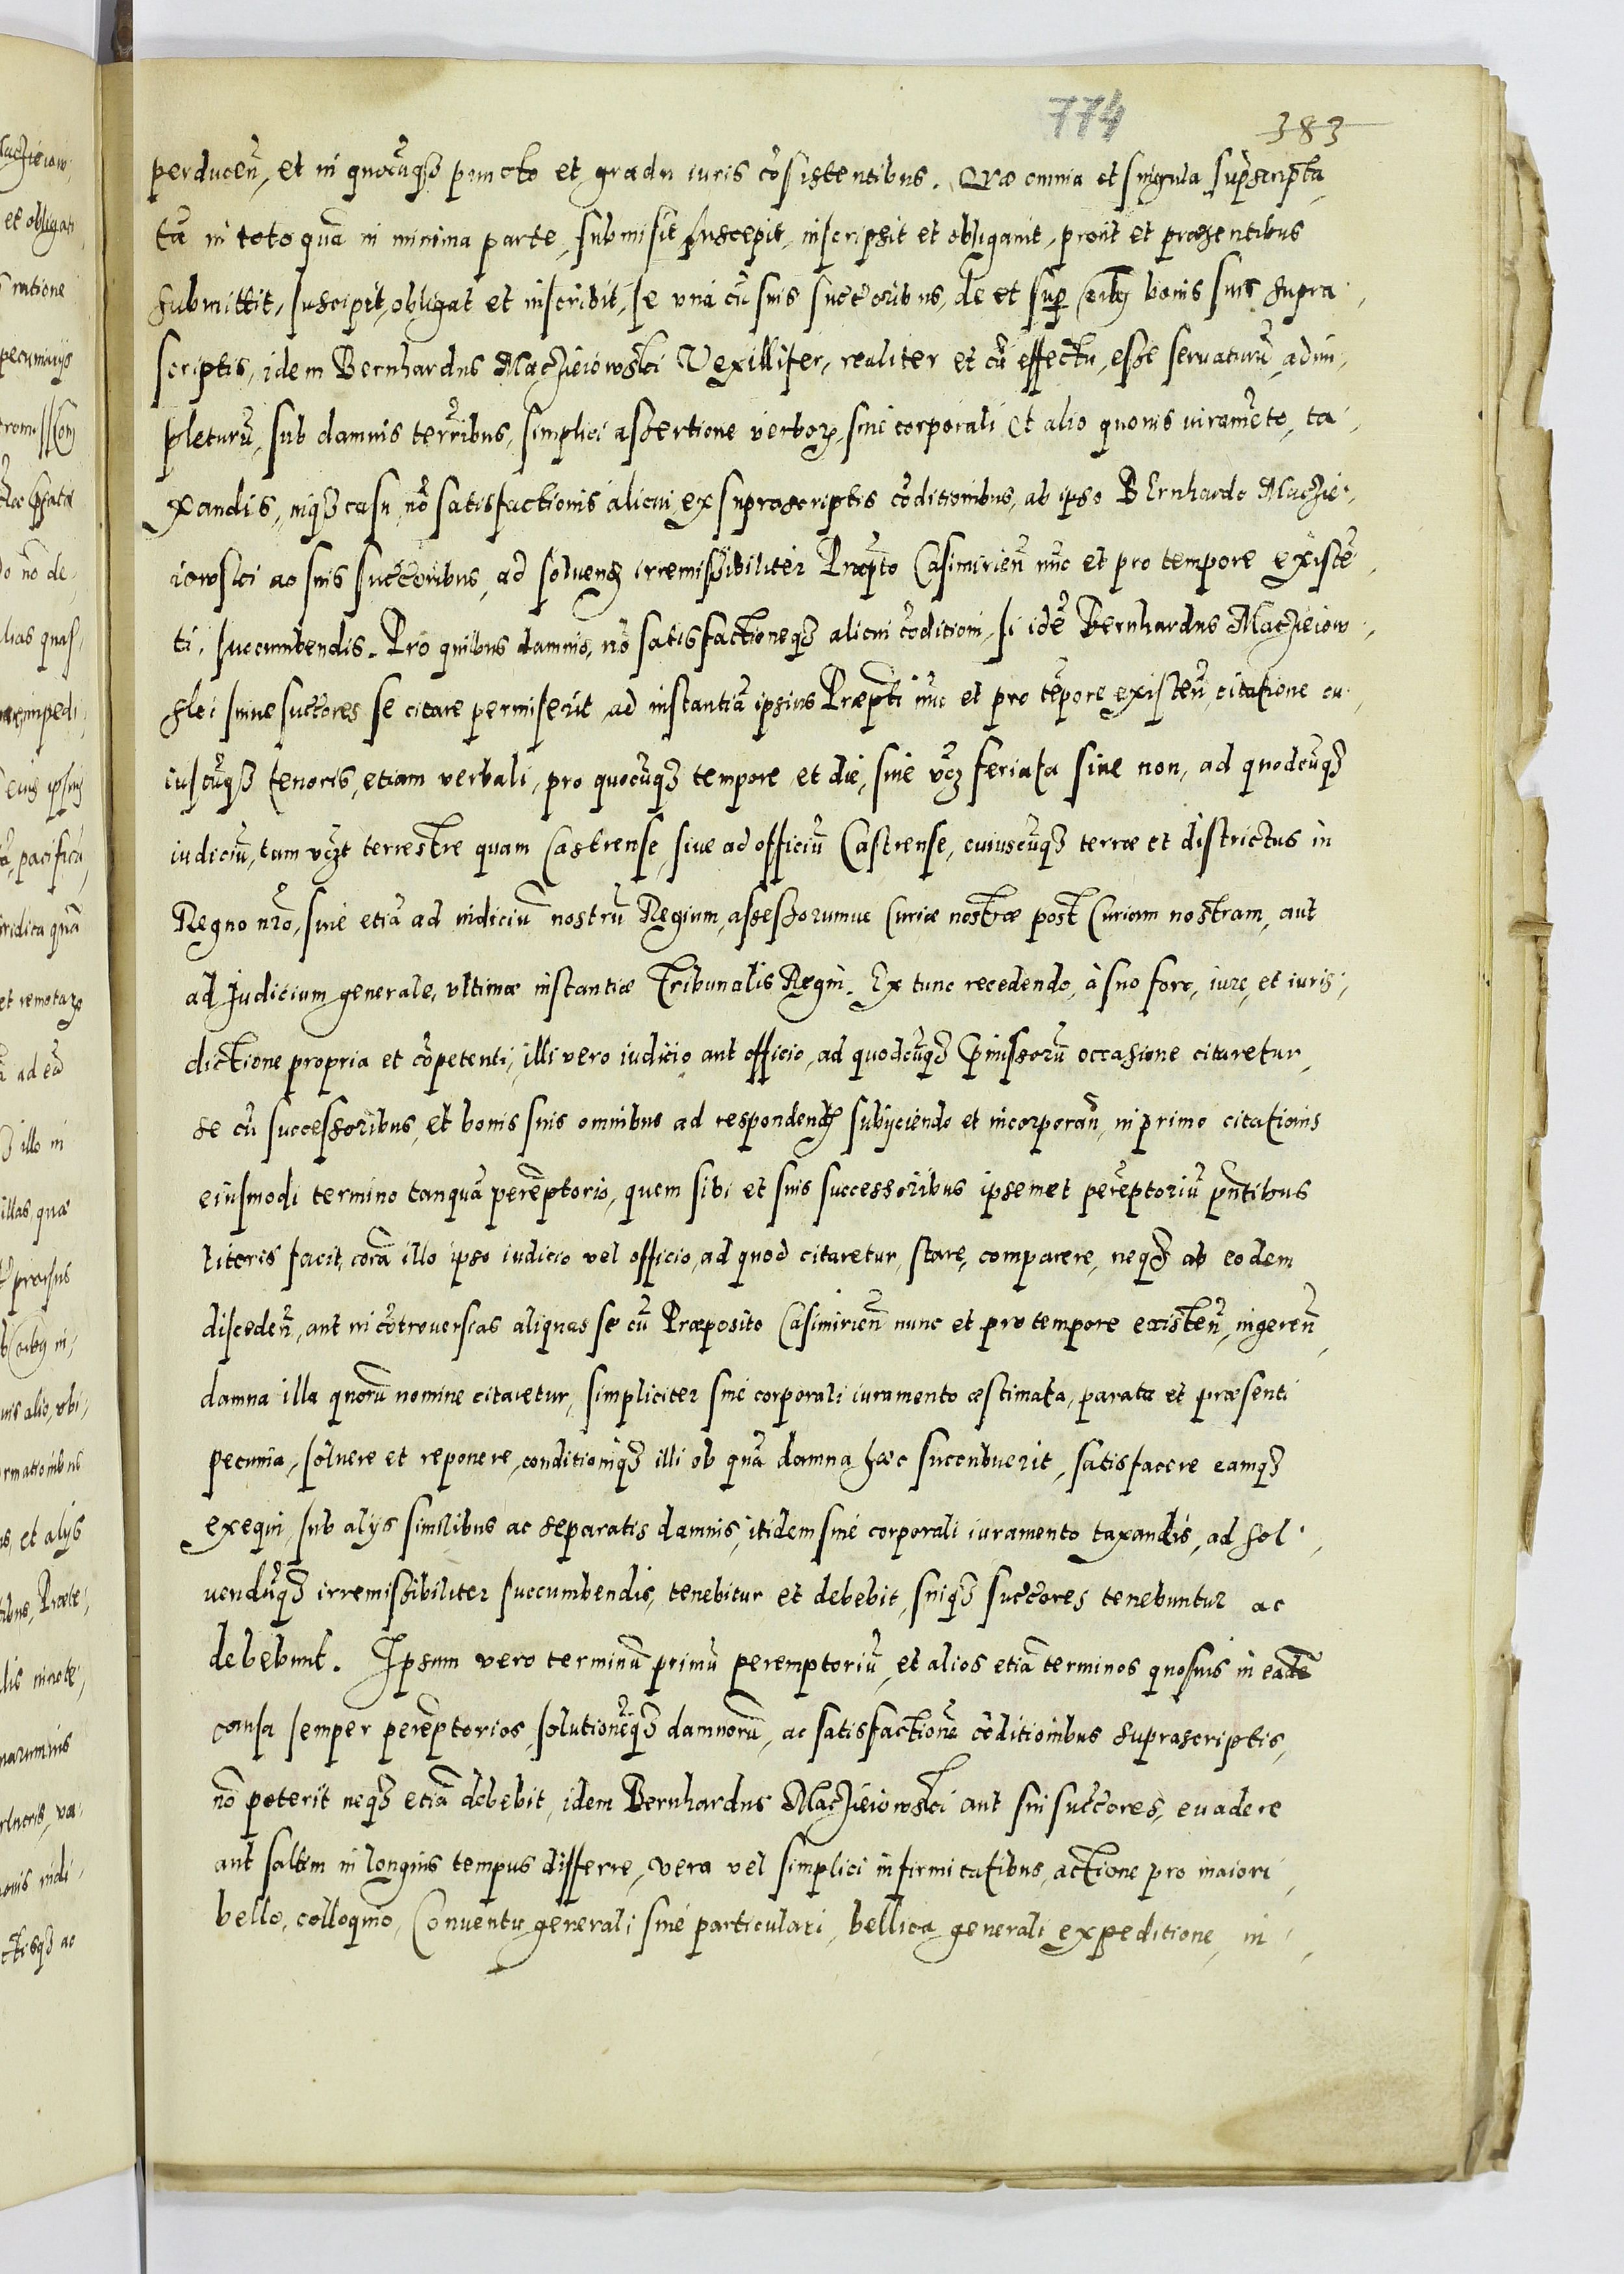 774 383
perduceñ, et in quocūqȝ puncto et gradu iuris cōsistentibus. Quæ omnia et singula supscripta,
tā in toto quā in minima parte, submisit suscepit, inscripsit et obligauit, prout et præsentibus
submittit, suscipit, obligat et inscribit, se vna cū suis succ̄oribus, de et sup oībȝ bonis suis supra,
scriptis, idem Bernhardus Maczieiowski Vexillifer, realiter et cū effectu, esse seruaturū, adim,
pleturū, sub damnis terrībus, simplici assertione verboꝝ, sine corporali et alio quouis iuramēto, ta,
xandis, inqȝ casu nō satisfactionis alicui ex suprascriptis cōditionibus, ab ipso Bernhardo Maczie,
iowski ac suis succ̄oribus, ad soluenȝ irremissibiliter Præpto Casimirieñ nūc et pro tempore existē,
ti, succumbendis. Pro quibus damnis, nō satisfactioneqȝ alicui cōditioni, si idē Bernhardus Maczieiow,
ski siue succ̄ores se citare permiserit, ad instantiā ipsius Præpti nūc et pro tēpore existeñ, citatione cu,
iuscūqȝ tenoris, etiam verbali, pro quocūqȝ tempore et die, siue vcȝ feriata siue non, ad quodcūqȝ
iudiciū, tam vcȝt terrestre quam Castrense, siue ad officiū Castrense, cuiuscūqȝ terræ et districtus in
Regno nr̄o, siue etiā ad iudiciū nostrū Regium, assessorumue Curiæ nostræ post Curiam nostram, aut
ad Judicium generale, vltimæ instantiæ Tribunalis Regni. Ex tunc recedendo, à suo foro, iure, et iuris,
dictione propria et cōpetenti, illi vero iudicio aut officio, ad quodcūqȝ p̄missorū occasione citaretur,
se cū successoribus, et bonis suis omnibus ad respondenȝ subijciendo et incorporañ, in primo citationis
eiusmodi termino tanquā perēptorio, quem sibi et suis successoribus ipsemet perēptoriū pñtibus
literis facit, corā illo ipso iudicio vel officio, ad quod citaretur, stare, comparere, neqȝ ab eodem
discedeñ, aut in cōtrouersias aliquas se cū Præposito Casimirieñ nunc et pro tempore existeñ, ingereñ,
damna illa quorū nomine citaretur, simpliciter sine corporali iuramento æstimata, parata et præsenti
pecunia, soluere et reponere, conditioniqȝ illi ob quā damna hæc succubuerit, satisfacere eamqȝ
exequi, sub alijs similibus ac separatis damnis, itidem sine corporali iuramento taxandis, ad sol,
uendūqȝ irremissibiliter succumbendis, tenebitur et debebit, suiqȝ succ̄ores tenebuntur ac
debebunt. Ipsum vero terminū primū peremptoriū, et alios etiā terminos quosuis in eadē
causa semper perēptorios, solutionēqȝ damnorū, ac satisfactionē cōditionibus suprascriptis,
nō poterit neqȝ etiā debebit, idem Bernhardus Maczieiowski aut sui succ̄ores, euadere
aut saltem in longius tempus differre, vera vel simplici infirmitatibus, actione pro maiori,
bello, colloquio, Conuentu generali siue particulari, bellica generali expeditione, in,